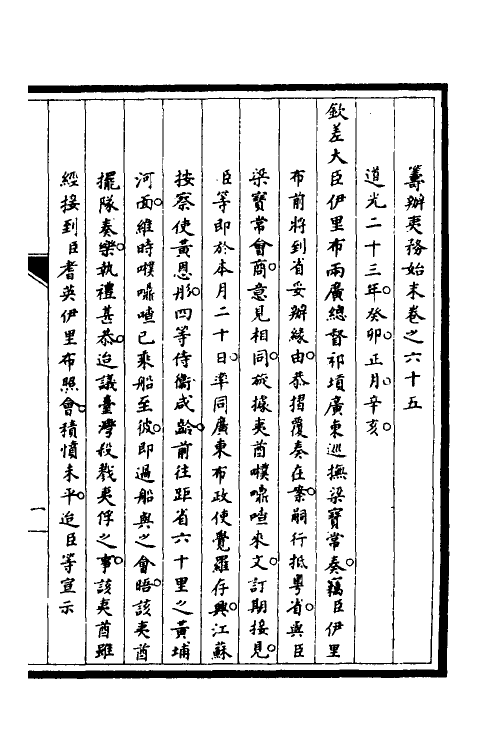 籌辦夷務始末卷之六十五
道光二十三年。癸卯。正月。辛亥。
欽差大臣伊里布兩廣總督祁𡎴廣東巡撫梁寶常奏。竊臣伊里
布前將到省妥辦緣由。恭摺覆奏在案。嗣行抵粵省。與臣
梁寶常會商。意見相同。旋據夷酋噗𠾐喳來文訂期接見。
臣等即於本月二十日。率同廣東布政使覺羅存興。江蘇
按察使黃恩彤。四等侍衞咸齡。前往距省六十里之黃埔
河面。維時噗𠾐喳已乘船至彼。即過船與之會晤。該夷酋
擺隊奏樂。執禮甚恭。迨議臺灣殺戮夷俘之事。該夷酋雖
經接到臣耆英伊里布照會。積憤未平。迨臣等宣示
一